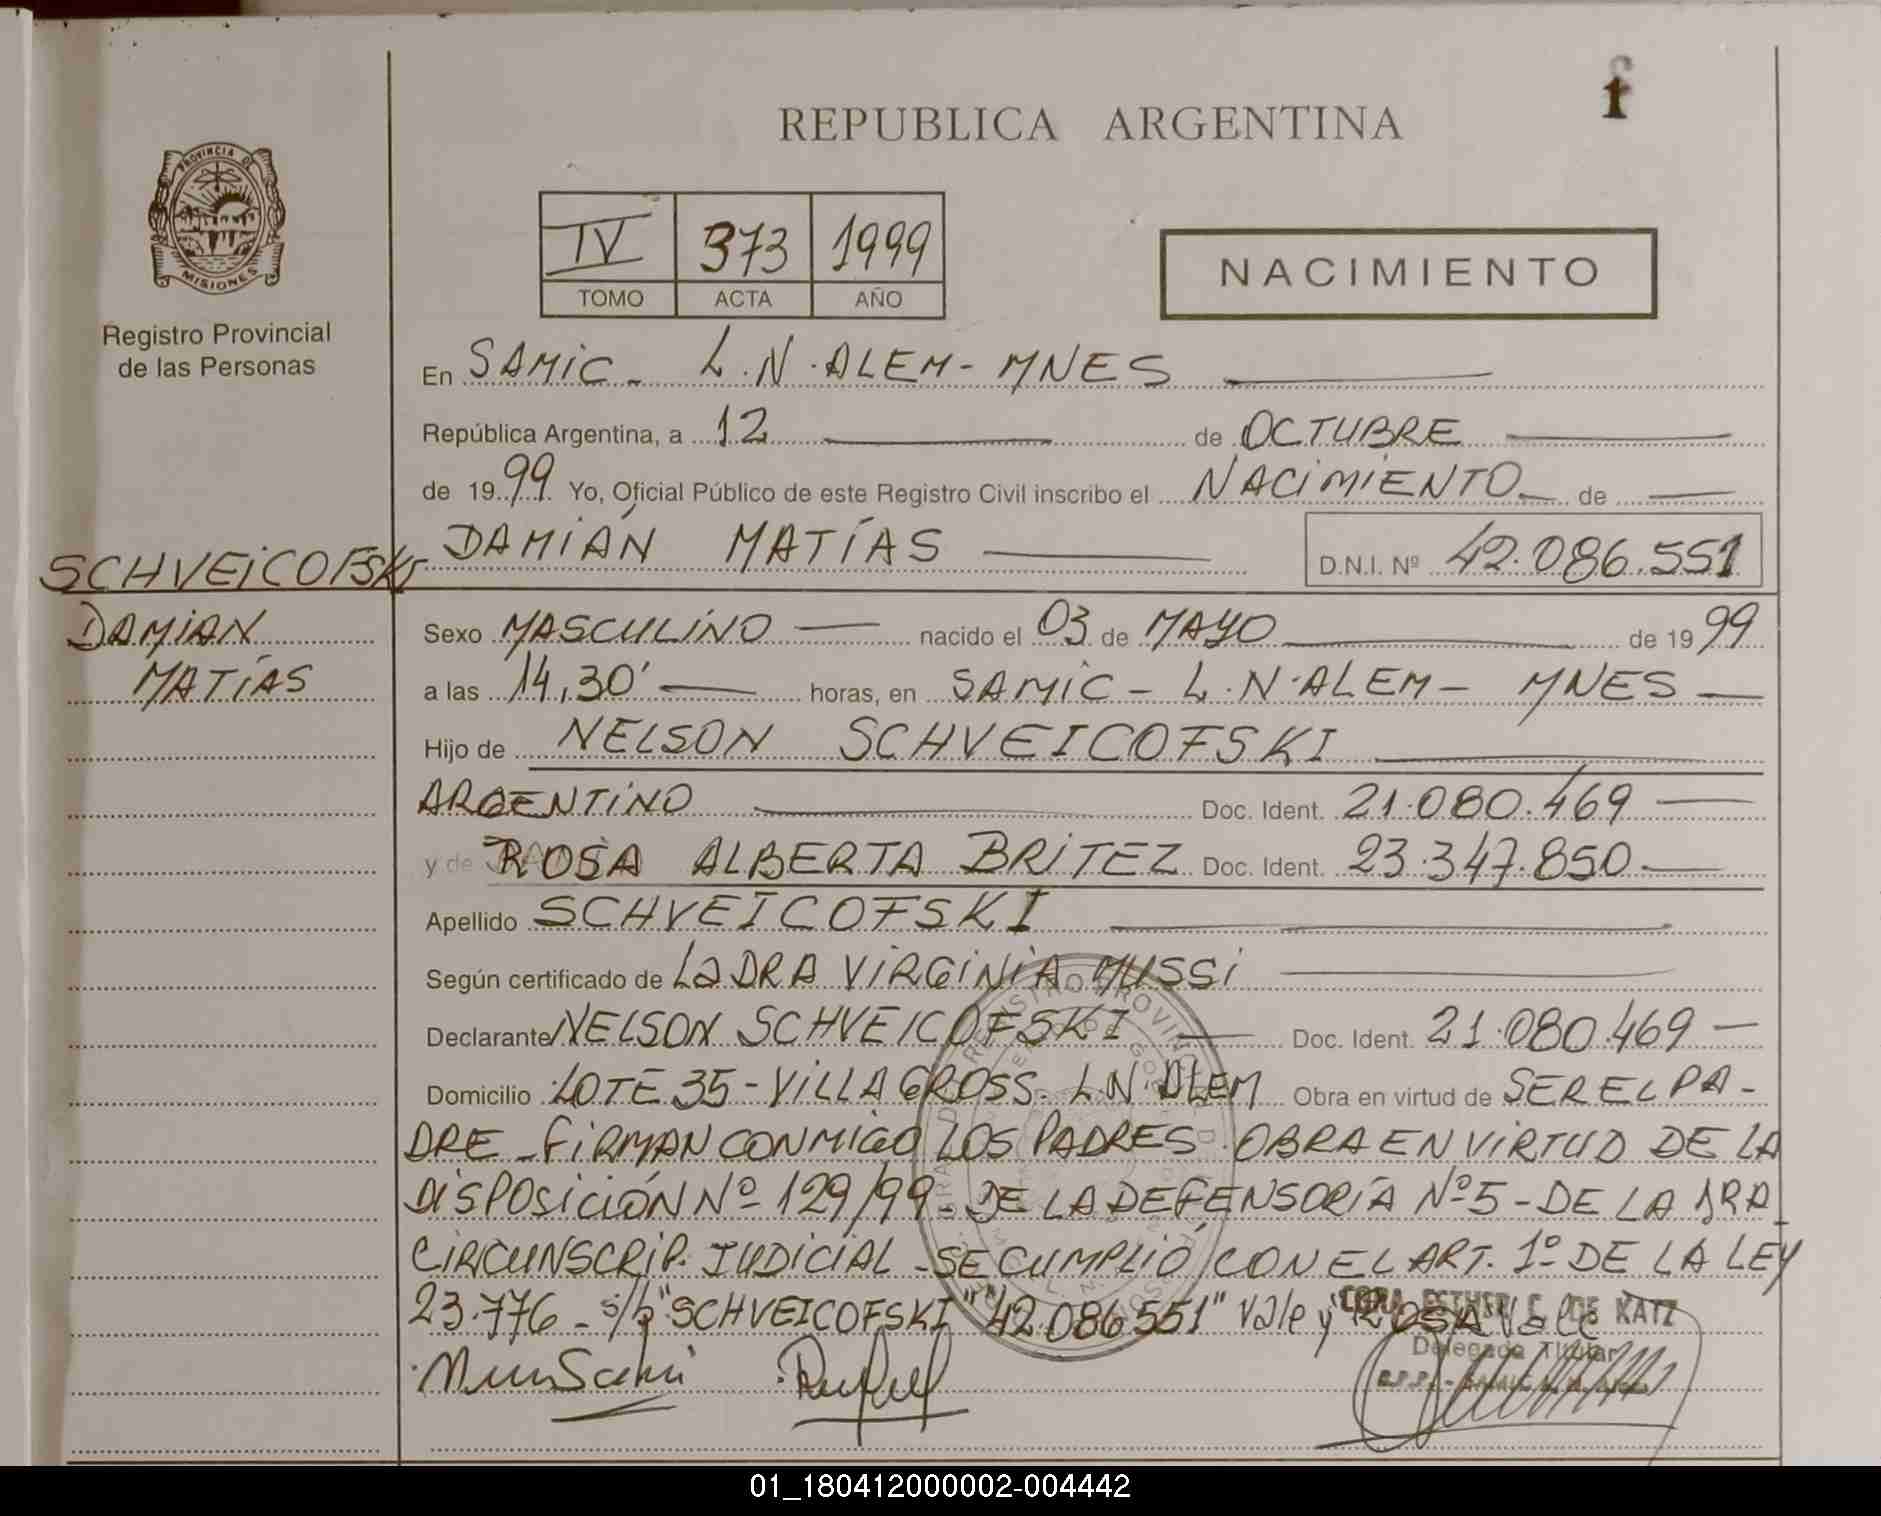 f
1
REPUBLICA ARGENTINA
PROVINCIA DE
MISIONES
Registro Provincial
de las Personas
IV 373 1999
TOMO ACTA AÑO
NACIMIENTO
En SAMIC - L.N. ALEM - MNES
República Argentina, a 12 de OCTUBRE
de 1999 Yo, Oficial Público de este Registro Civil inscribo el NACIMIENTO de
DAMIÁN MATÍAS D.N.I. Nº 42.086.551
SCHVEICOFSKI
DAMIAN
MATÍAS
Sexo MASCULINO nacido el 03 de MAYO de 1999
a las 14,30' horas, en SAMIC - L.N. ALEM - MNES
Hijo de NELSON SCHVEICOFSKI
ARGENTINO Doc. Ident. 21.080.469
y de ROSA ALBERTA BRITEZ Doc. Ident. 23.347.850
Apellido SCHVEICOFSKI
Según certificado de La DRA VIRGINIA MUSSI
Declarante NELSON SCHVEICOFSKI Doc. Ident. 21.080.469
Domicilio LOTE 35 - VILLA GROSS. L.N. ALEM Obra en virtud de SER EL PA-
DRE - FIRMAN CONMIGO LOS PADRES. OBRA EN VIRTUD DE LA
DISPOSICIÓN Nº 129/99 - DE LA DEFENSORÍA Nº 5 - DE LA 1RA
CIRCUNSCRIP. JUDICIAL - SE CUMPLIÓ CON EL ART. 1º DE LA LEY
23.776 - s/b "SCHVEICOFSKI" "42.086551" Vale y "ROSA" Vale
CORA ESTHER C. DE KATZ
Delegada Titular
01_180412000002-004442